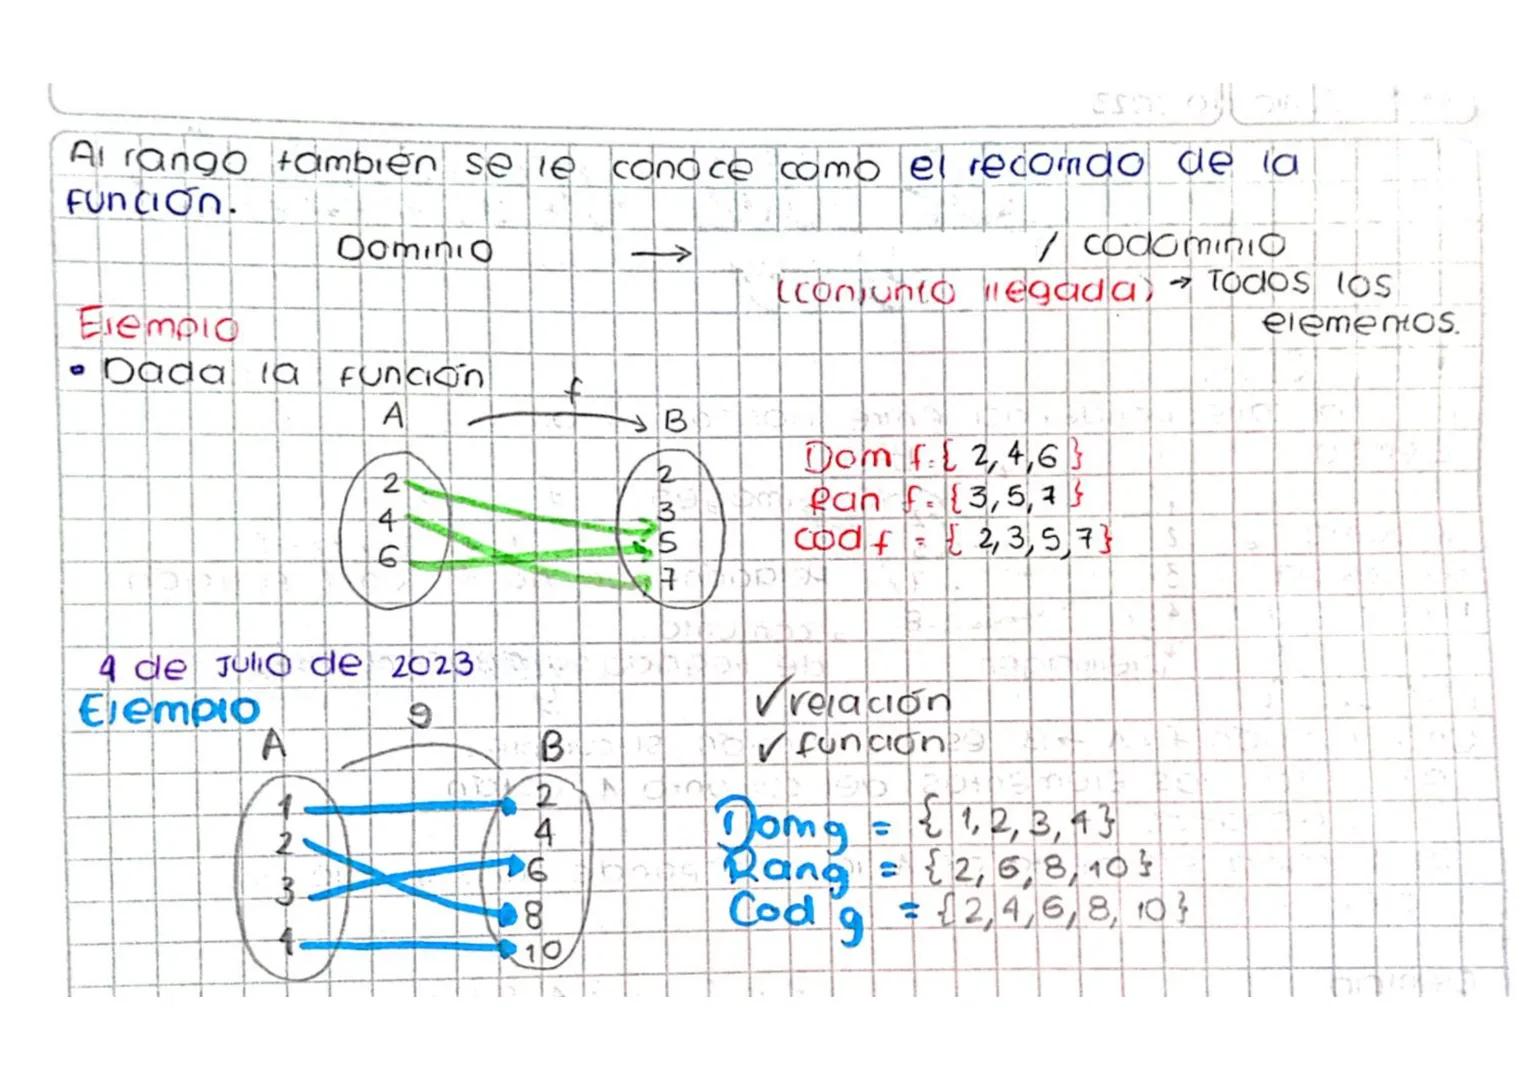 Al rango también se le conoce como el recorrido de la
función.
Dominio → / codominio
(conjunto llegada) → Todos los
elementos.
Ejemplo
• Dada la función
f
A B
2 2
4 3
6 5
7
Dom f = { 2, 4, 6 }
Ran f = { 3, 5, 7 }
Cod f = { 2, 3, 5, 7 }
4 de Julio de 2023
Ejemplo
g
A B
1 2
2 4
3 6
4 8
10
✓ relación
✓ función
Dom g = { 1, 2, 3, 4 }
Ran g = { 2, 6, 8, 10 }
Cod g = { 2, 4, 6, 8, 10 }